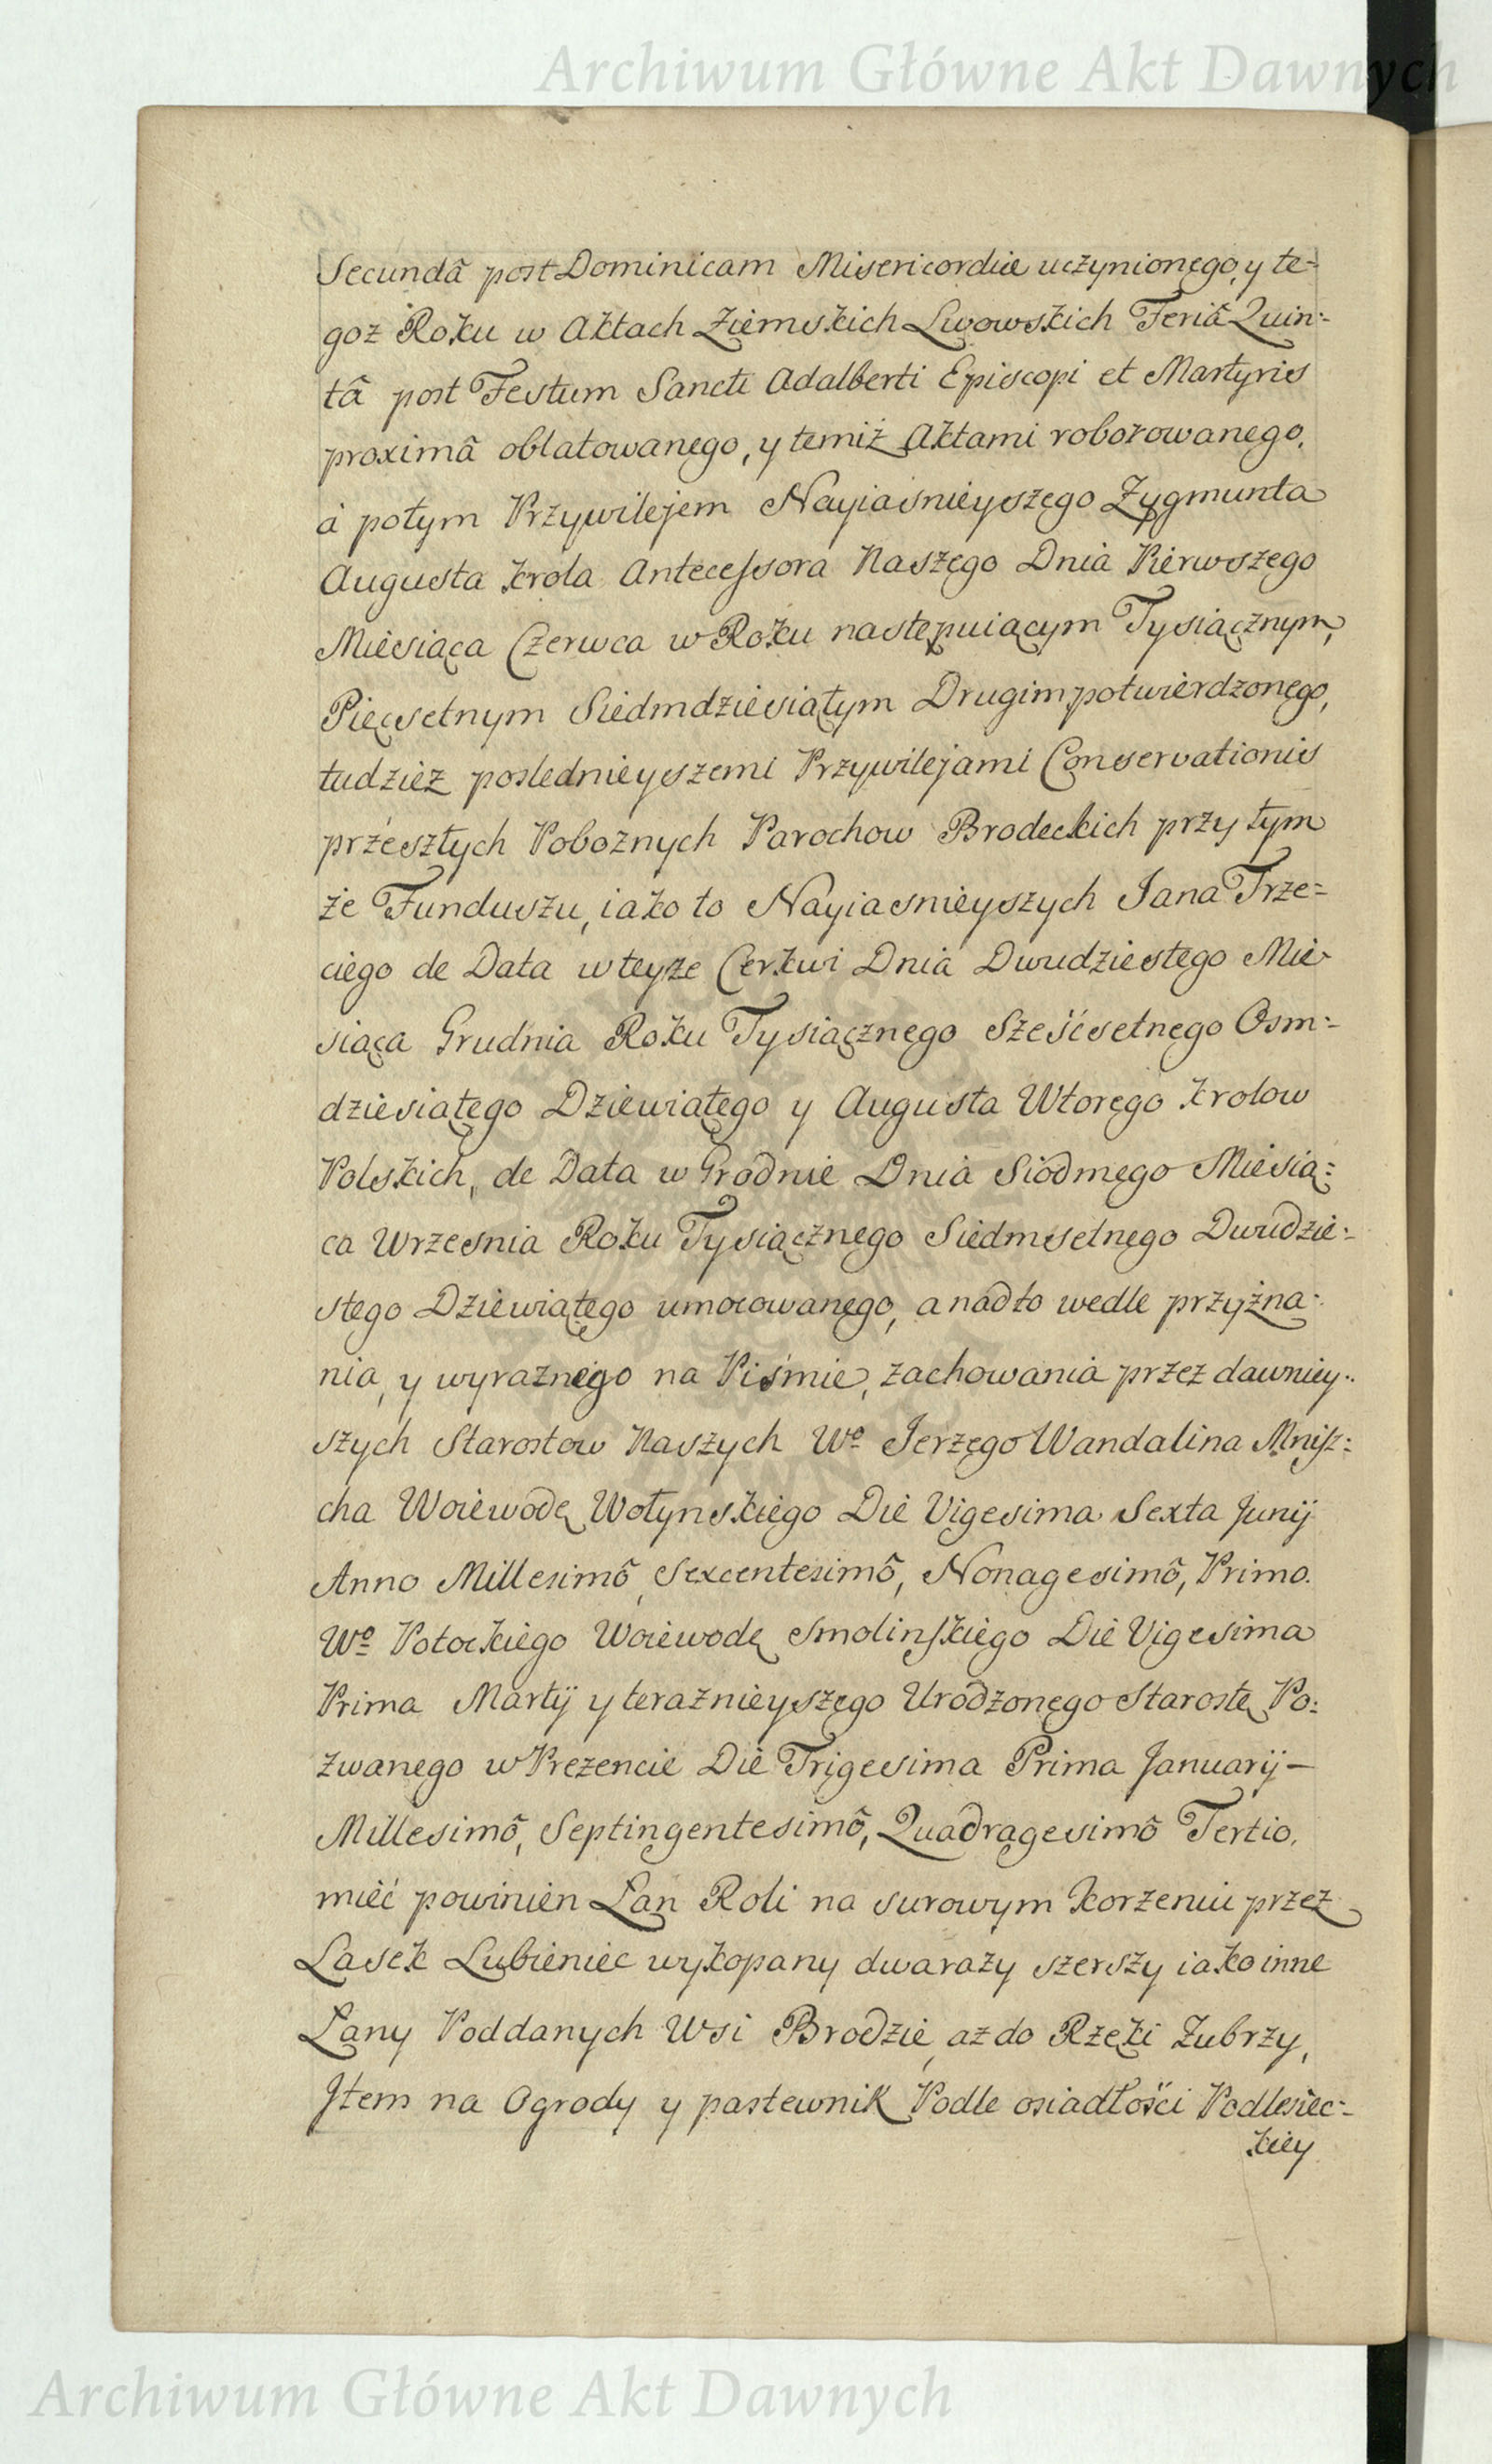 Archiwum Główne Akt Dawnych
Secundâ post Dominicam Misericordiæ uczynionego, y te=
goz Roku w Aktach Ziemskich Lwowskich Feriâ Quin:
tâ post Festum Sancti Adalberti Episcopi et Martyris
proximâ oblatowanego, y temiż Aktami roborowanego,
à potym Przywilejem Nayiasnieyszego Zygmunta
Augusta krola Antecessora Naszego Dnia Pierwszego
Miesiąca Czerwca w Roku nastepuiącym Tysiącznym,
Pięcsetnym Siedmdziesiątym Drugim potwierdzonego,
tudziez poslednieyszemi Przywilejami Conservationis
przeszłych Poboznych Parochow Brodeckich przy tym
że Funduszu, iako to Nayiasnieyszych Jana Trze=
ciego de Data w teyze Cerkwi Dnia Dwudziestego Mie-
siąca Grudnia Roku Tysiącznego Sześćsetnego Osm:
dziesiątego Dziewiątego y Augusta Wtorego krolow
Polskich, de Data w Grodnie Dnia Siodmego Miesią:
ca Wrzesnia Roku Tysiącznego Siedmsetnego Dwudzie:
stego Dziewiątego umocowanego, a nadto wedle przyzna:
nia, y wyraznego na Piśmie, zachowania przez dawniey:
szych Starostow Naszych Wo Jerzego Wandalina Mnisz:
cha Woiewodę Wołynskiego Die Vigesima Sexta Junij
Anno Millesimô, Sexcentesimô, Nonagesimô, Primo.
Wo Potockiego Woiewodę Smolinskiego Die Vigesima
Prima Martij y teraznieyszego Urodzonego Starostę Po:
zwanego w Prezencie Die Trigesima Prima Januarij —
Millesimô, Septingentesimô, Quadragesimô Tertio.
mieć powinien Łan Roli na surowym korzeniu przez
Lasek Lubieniec wykopany dwa razy szerszy iako inne
Łany Poddanych Wsi Brodzie, aż do Rzeki Zubrzy,
Jtem na Ogrody y pastewnik Podle osiadłości Podlesiec:
kiey
Archiwum Główne Akt Dawnych